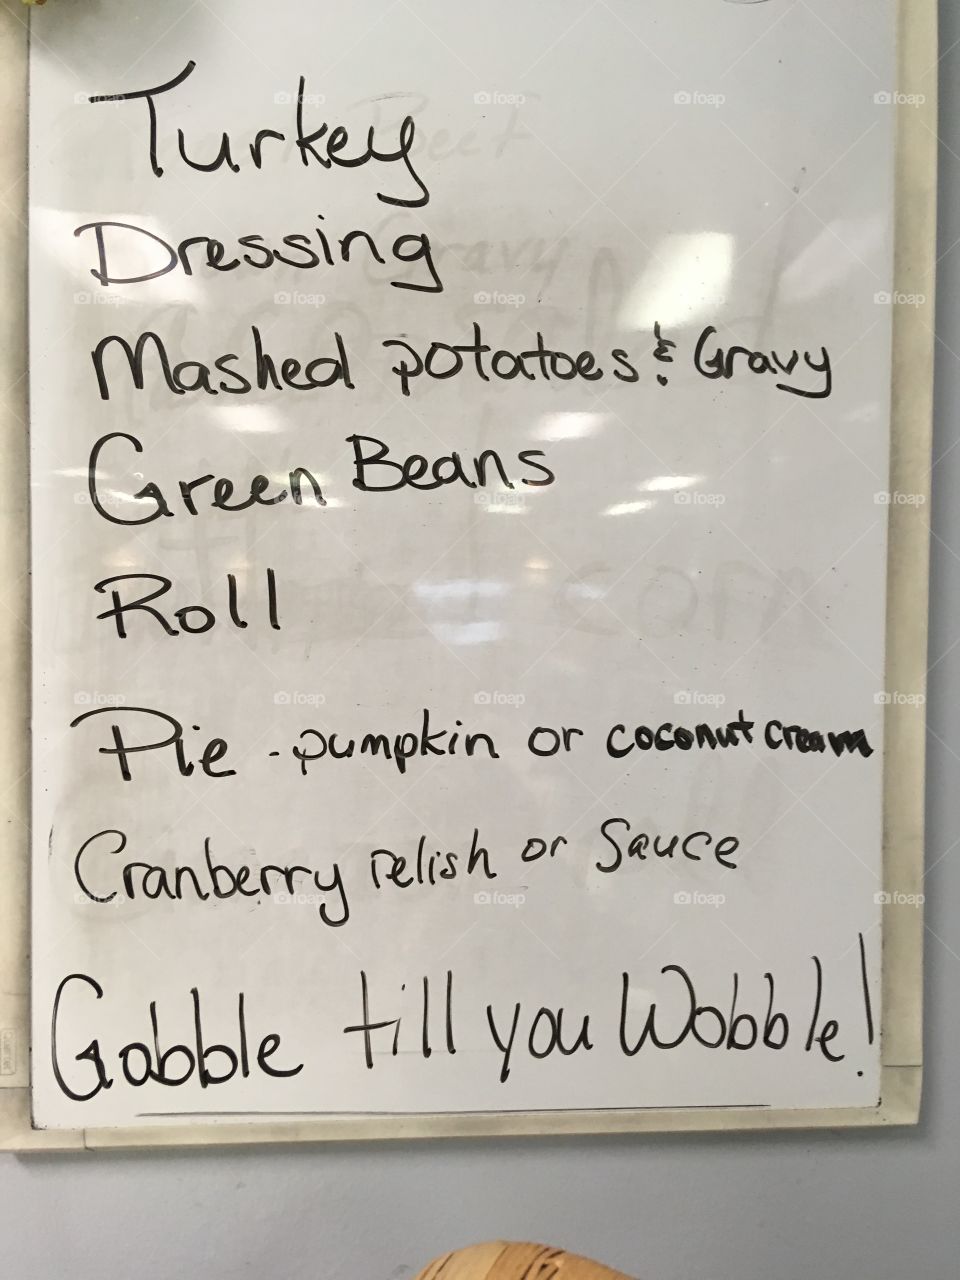 Turkey
Dressing
Mashed potatoes & Gravy
Green Beans
Roll
Pie - pumpkin or coconut cream
Cranberry relish or Sauce
Gobble till you Wobble!